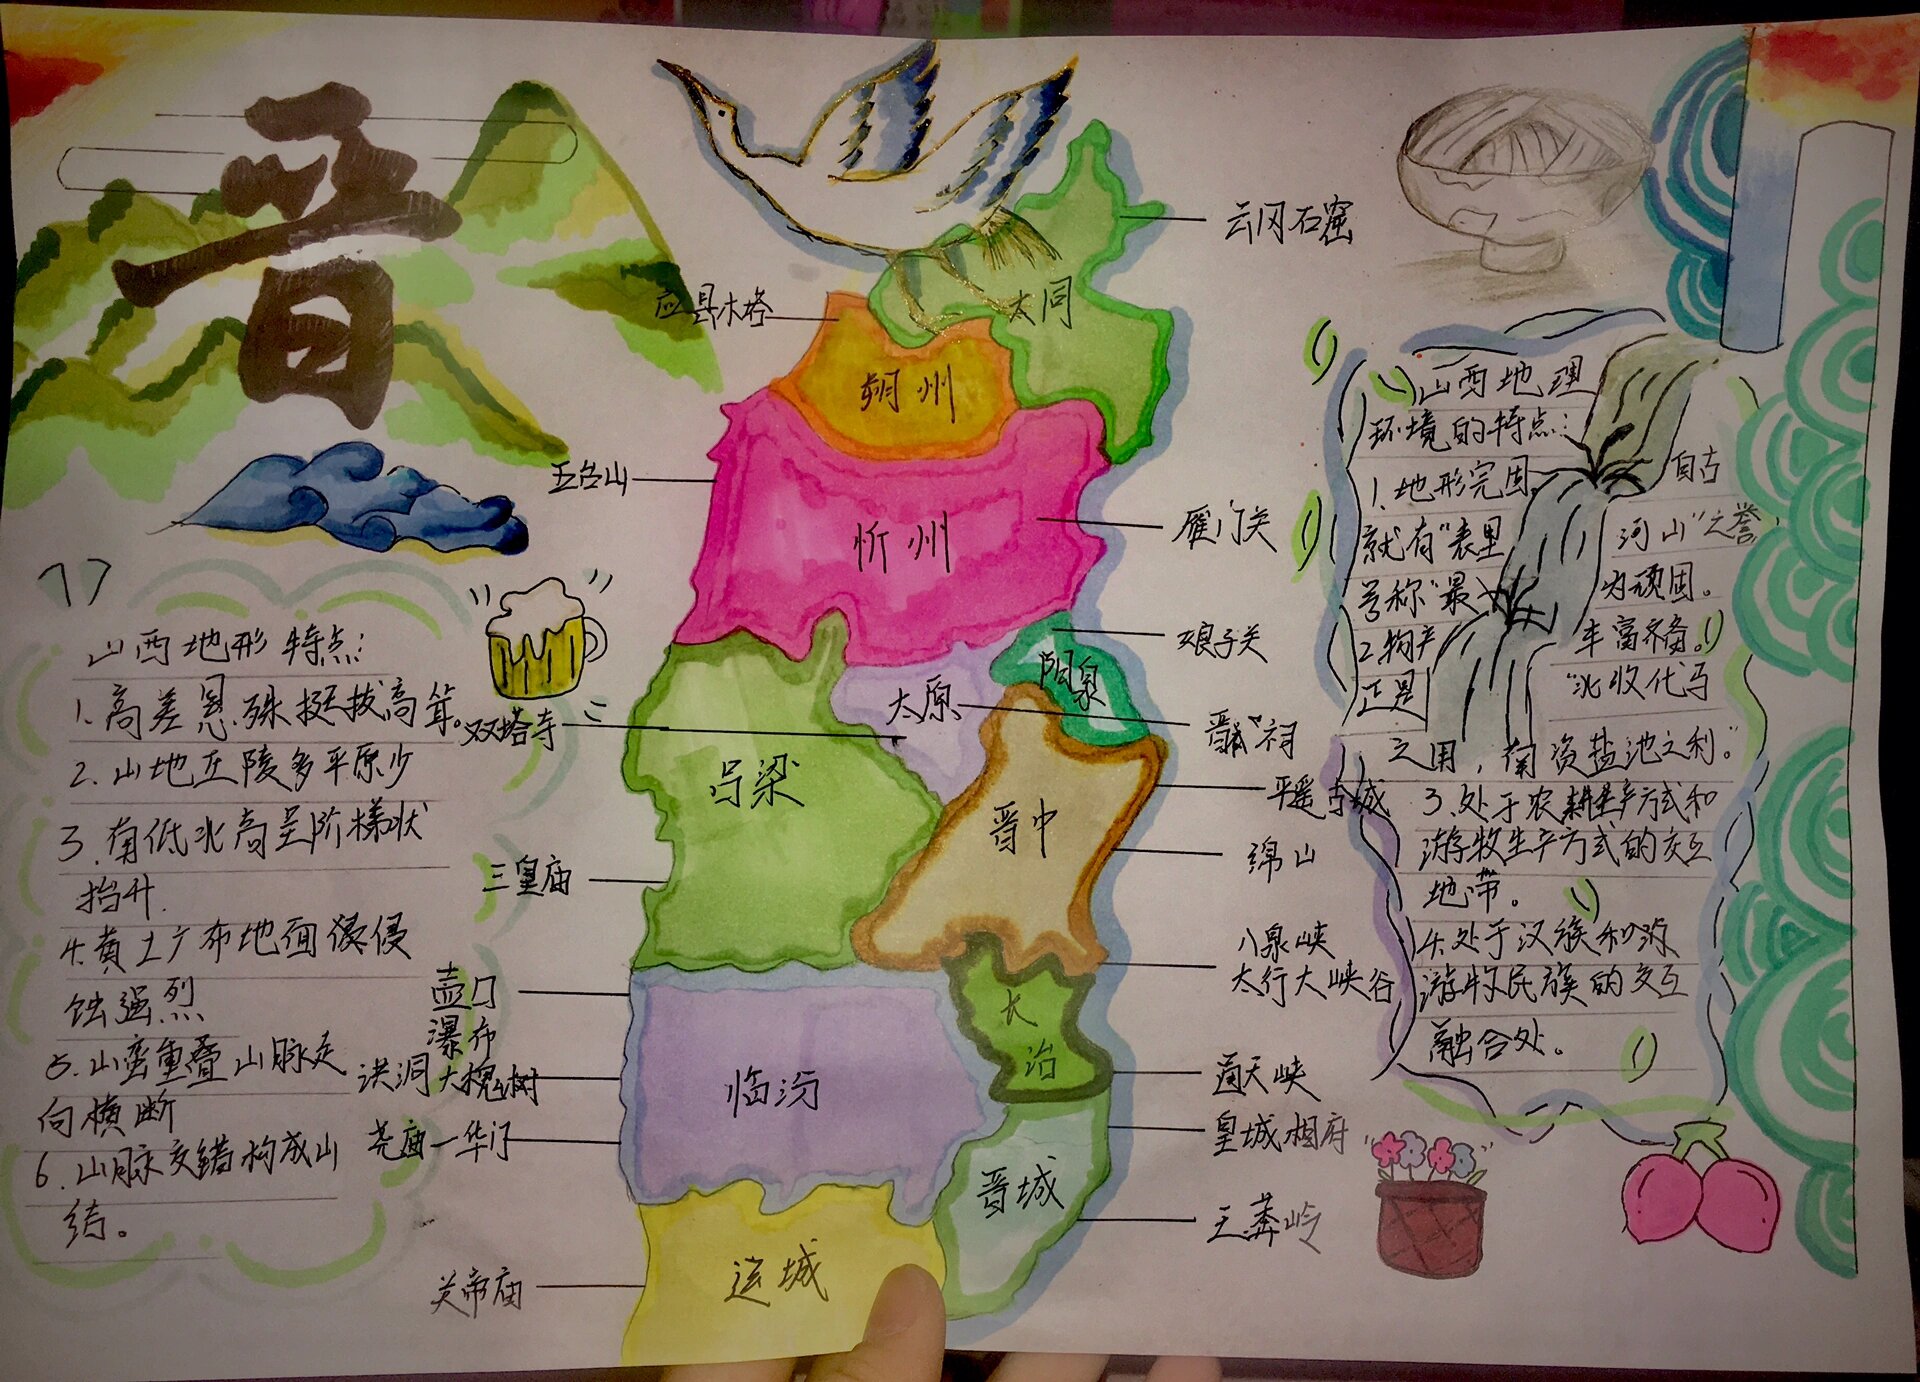 晋
山西地形特点:
1.高差悬殊挺拔高耸。
2.山地丘陵多平原少
3.南低北高呈阶梯状
抬升.
4.黄土广布地面侵侵
蚀强烈
5.山峦重叠山脉走
向横断
6.山脉交错构成山
结。
应县木塔
五台山
双塔寺
三皇庙
壶口
瀑布
洪洞大槐树
尧庙一华门
关帝庙
大同
朔州
忻州
阳泉
太原
吕梁
晋中
长
治
临汾
晋城
运城
云冈石窟
雁门关
娘子关
晋祠
平遥古城
绵山
八泉峡
太行大峡谷
通天峡
皇城相府
王莽岭
山西地理
环境的特点:
1.地形完固 自古
就有"表里 河山"之誉,
号称"最 为顽固。
2.物产 丰富齐备。
正是 "北收代马
之用,南资盐池之利。"
3.处于农耕生产方式和
游牧生产方式的交互
地带。
4.处于汉族和
游牧民族的交互
融合处。